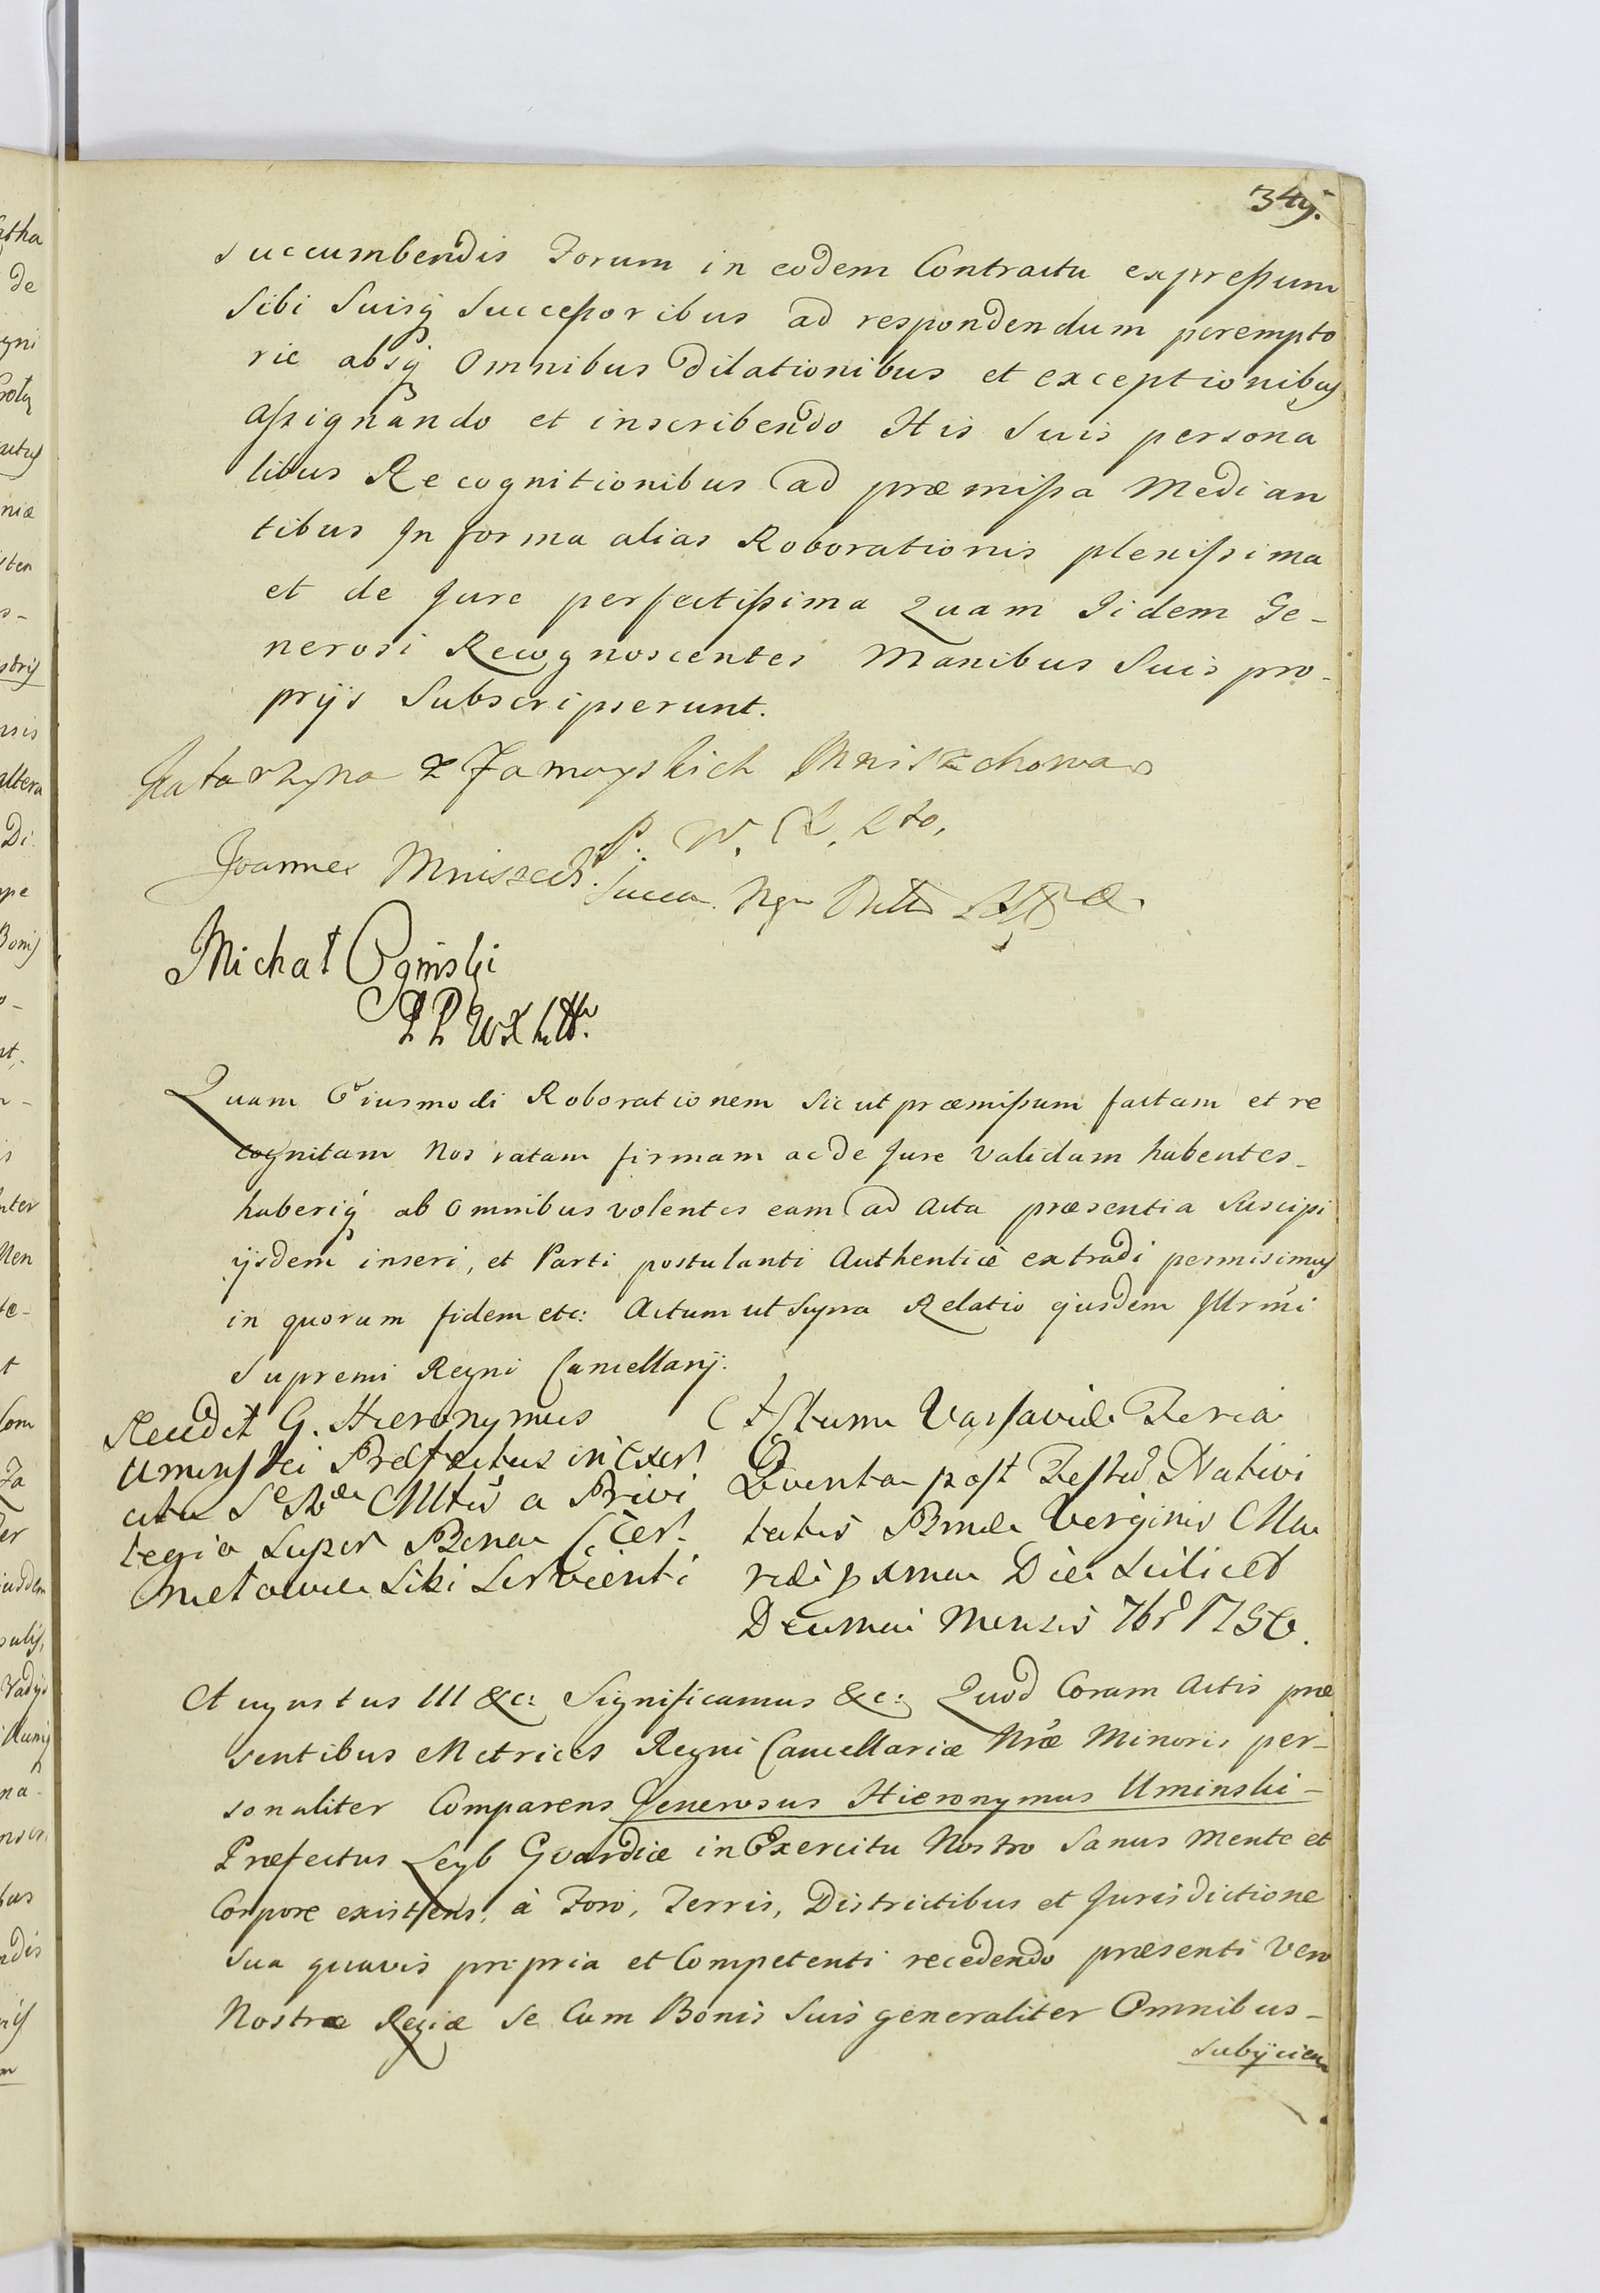 349.
succumbendis Forum in eodem Contractu expressum
Sibi Suisq Successoribus ad respondendum perempto
rie absq Omnibus dilationibus et exceptionibus
assignando et inscribendo His Suis persona
libus Recognitionibus ad præmissa Median
tibus In forma alias Roborationis plenissima
et de Jure perfectissima Quam Iidem Ge-
nerosi Recognoscentes Manibus Suis pro-
prijs Subscripserunt.
Katarzyna z Zamoyskich Mniszchowa
P. W. X. Lto.
Joannes Mniszech
Michał Ogiński
Quam Eiusmodi Roborationem Sicut præmissum factam et re
cognitam Nos ratam firmam ac de Jure Validam habentes-
haberiq ab Omnibus volentes eam ad Acta præsentia Suscipi
ijsdem inseri, et Parti postulanti Authenticè extradi permisimus
in quorum fidem etc: Actum ut Supra Relatio ejusdem Illrmi
Supremi Regni Cancellarij.
Reudit G. Hieronymus
Uminski Præfectus in Exer
citu a Privi
legio Super Bona
Sibi Servienti
Actum Varsaviæ Feria
Quinta post Festum Nativi
tatis Bmæ Verginis Ma
riæ proxima Die Scilicet
Decima Mensis 7br 1756.
Augustus III &c: Significamus &c: Quod Coram Actis præ
sentibus Metrices Regni Cancellariæ Nræ Minoris per-
sonaliter Comparens Generosus Hieronymus Uminski-
Præfectus Leyb Gvardiæ in Exercitu Nostro Sanus Mente et
Corpore existens, à Foro, Terris, Districtibus et Jurisdictione
Sua quavis propria et Competenti recedendo præsenti Vero
Nostræ Regiæ Se Cum Bonis Suis generaliter Omnibus-
Subijcien